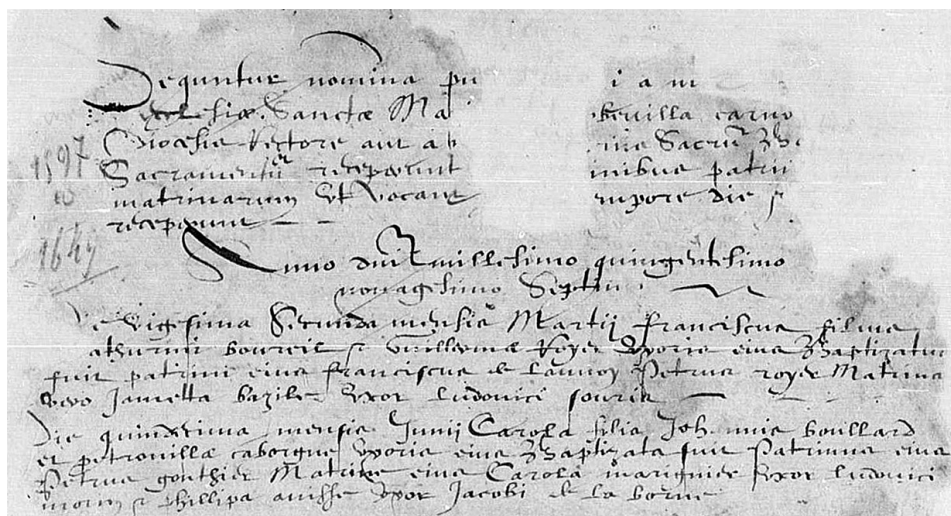 Sequntur nomina pu i a m
Ecclesiæ Sanctæ Ma bevilla carno
Diocesis Rectore aut ab
Sacramentū receperunt inibus patrin
matrinarum Vt Vocant empore die
receperunt
1597
1649
Anno dni millesimo quingentesimo
nonagesimo Septimo
Die vigesima Secunda mensis Martii franciscus filius
athurini boureil & Guillermæ Royer Vxoris eius Baptizatus
fuit patrini eius franciscus de Launoy Petrus royer Matrina
vero Jametta bazile Vxor Ludovici souris
Die quindecima mensis Junii Carola filia Johannis bouillard
et petronillæ caborgne Vxoris eius Baptizata fuit Patrinus eius
Petrus gonthier Matrine eius Carola marignier Vxor Ludovici
morin & phillipa ausse Vxor Jacobi de la borne